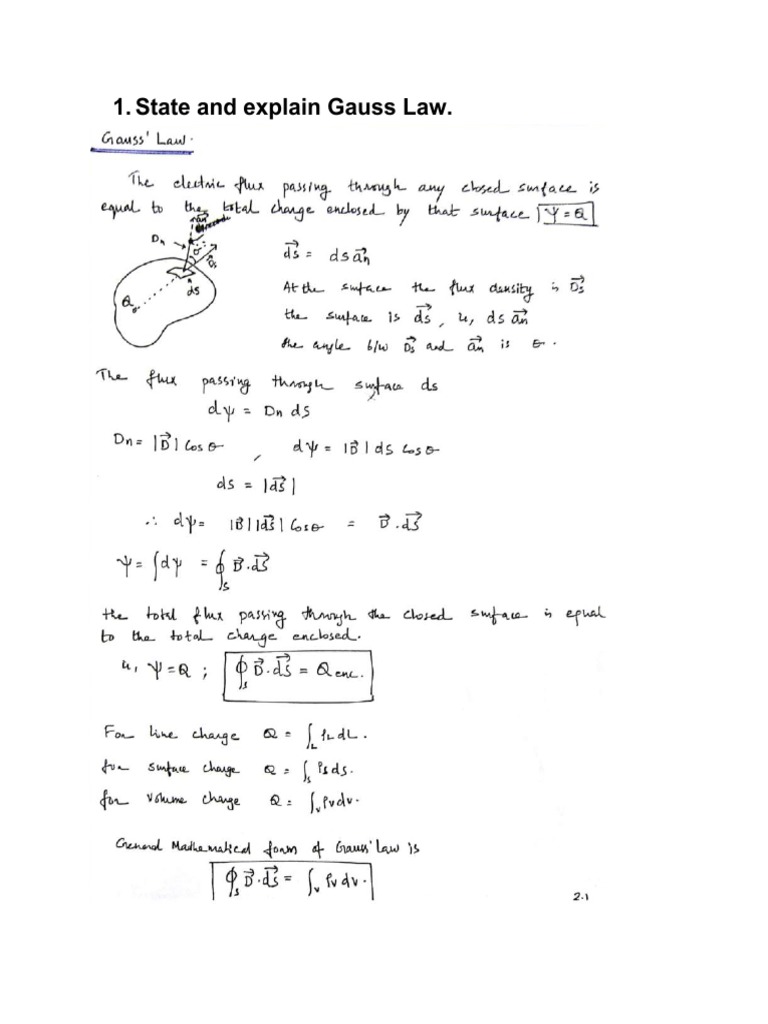 1. State and explain Gauss Law.
Gauss' Law.
The electric flux passing through any closed surface is
equal to the total charge enclosed by that surface | ψ = Q
Dn
θ
D⃗s
ds
Q
d⃗s = ds a⃗n
At the surface the flux density is D⃗s
the surface is d⃗s, ie, ds a⃗n
the angle b/w D⃗s and a⃗n is θ.
The flux passing through surface ds
dψ = Dn ds
Dn = |D⃗| Cos θ , dψ = |D⃗| ds Cos θ
ds = |d⃗s|
∴ dψ = |D⃗| |d⃗s| Cos θ = D⃗ . d⃗s
ψ = ∫dψ = ∮s D⃗ . d⃗s
the total flux passing through the closed surface is equal
to the total charge enclosed.
ie, ψ = Q ; ∮s D⃗ . d⃗s = Q enc.
For line charge Q = ∫L ρL dL.
for surface charge Q = ∫s ρs ds.
for volume charge Q = ∫v ρv dv.
General Mathematical form of Gauss' Law is
∮s D⃗ . d⃗s = ∫v ρv dv.
2.1